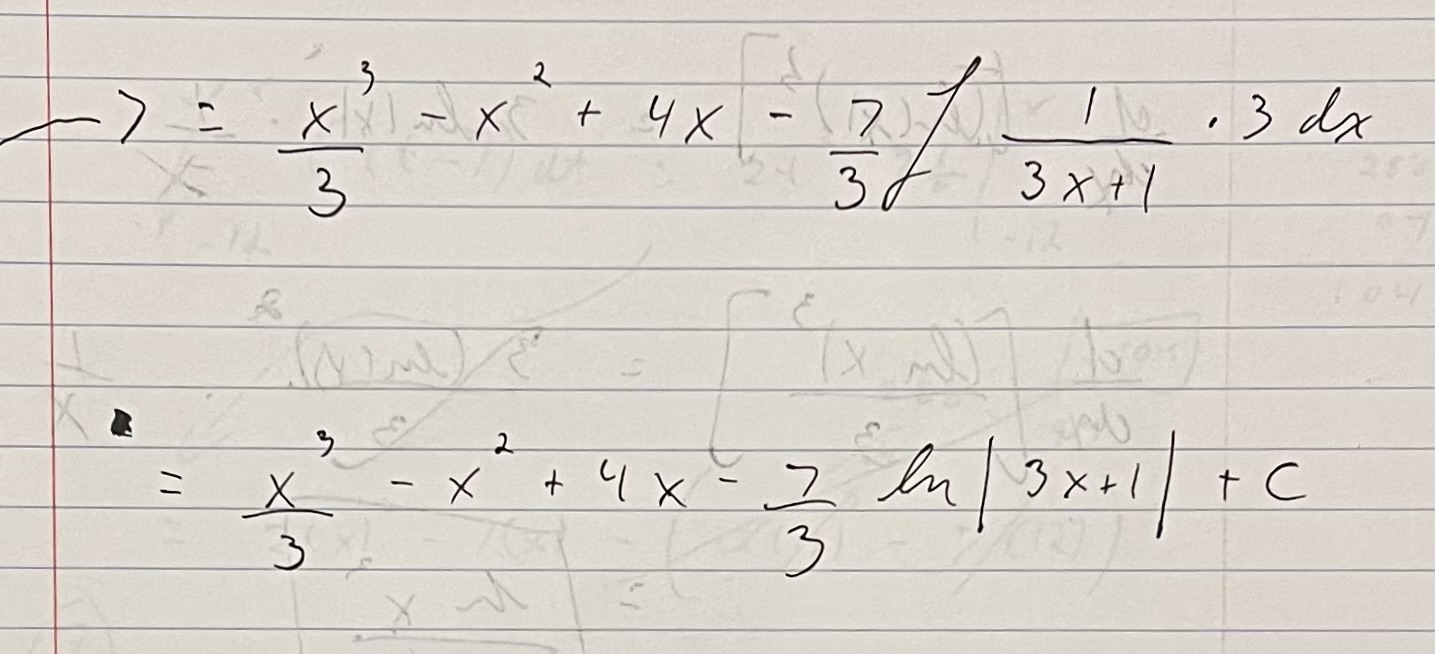 → = x³/3 - x² + 4x - 7/3 ∫ 1/(3x+1) · 3 dx
= x³/3 - x² + 4x - 7/3 ln|3x+1| + C